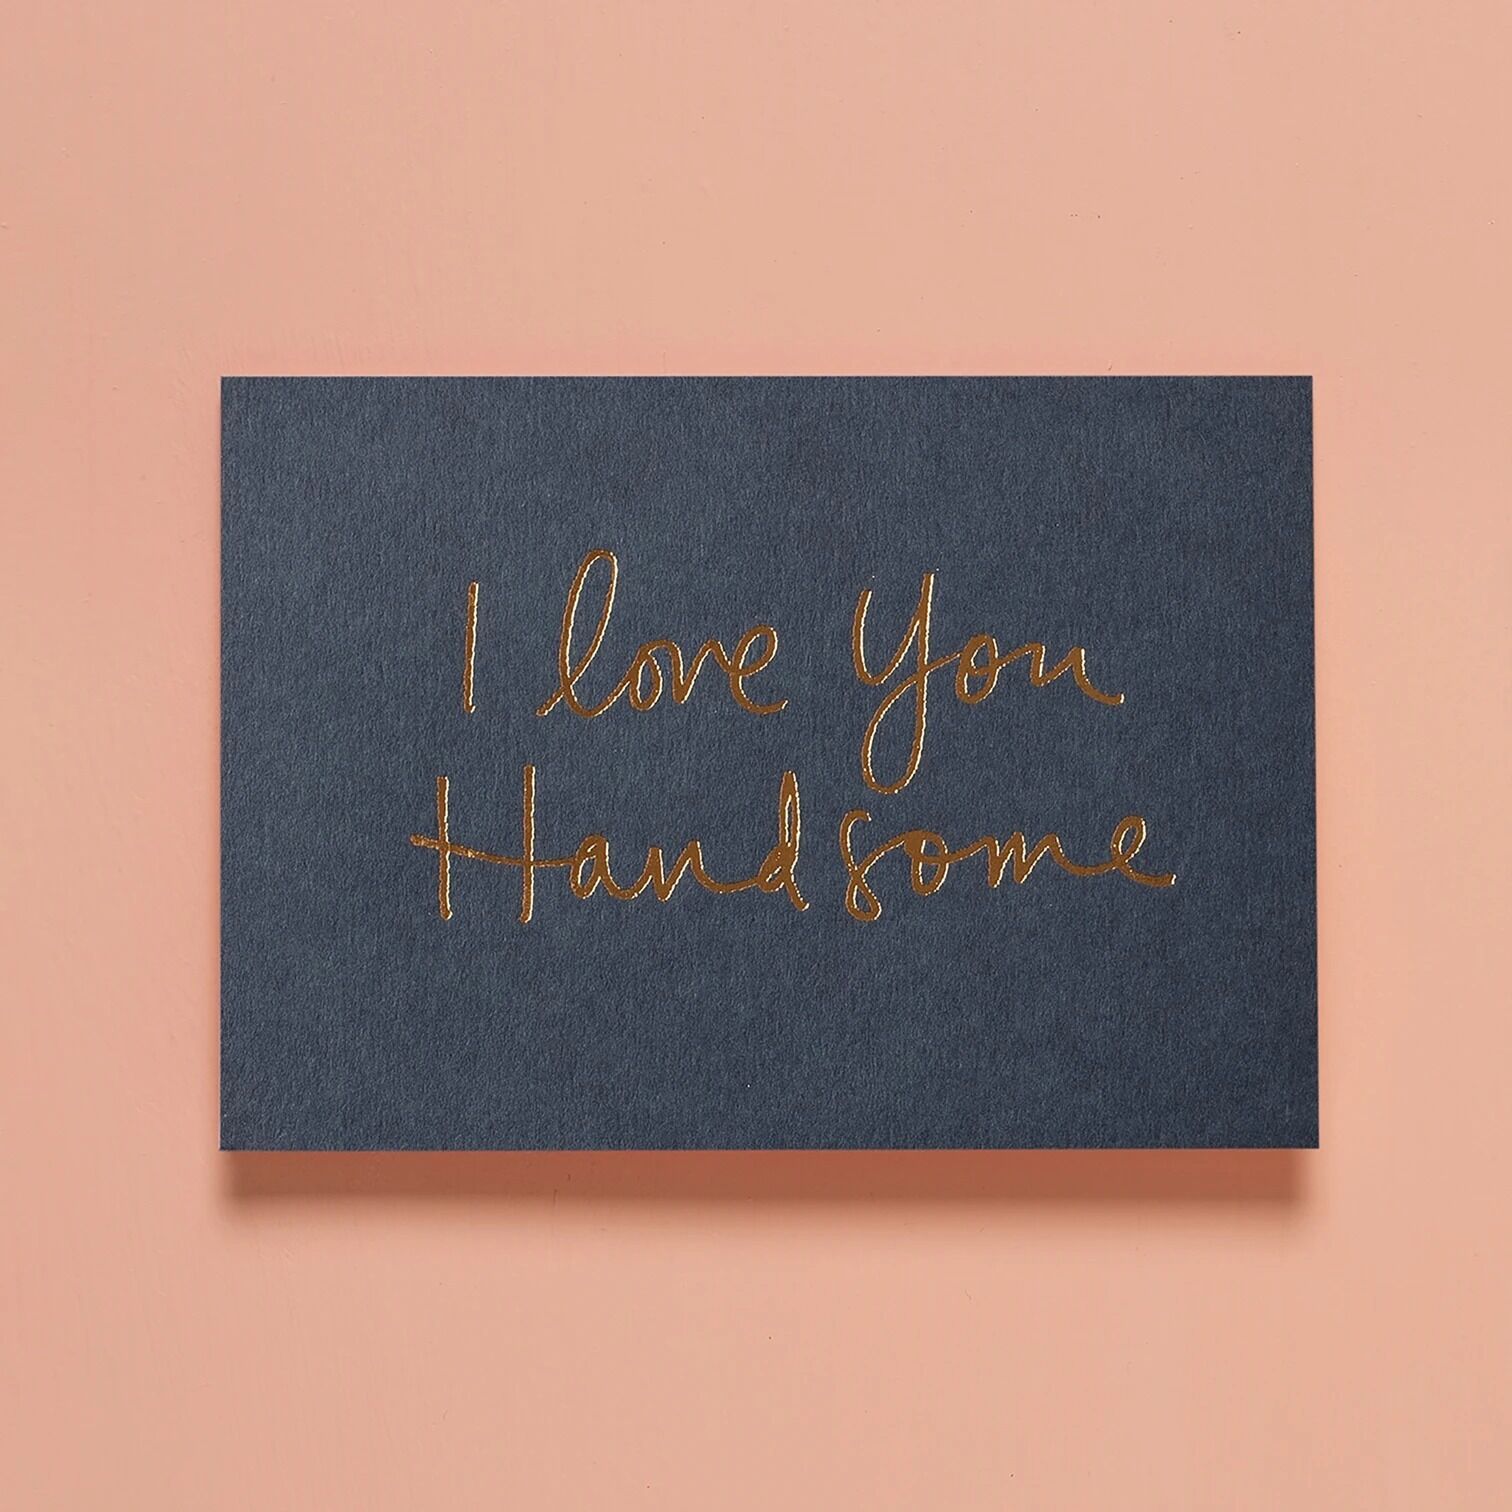 I love You
Handsome